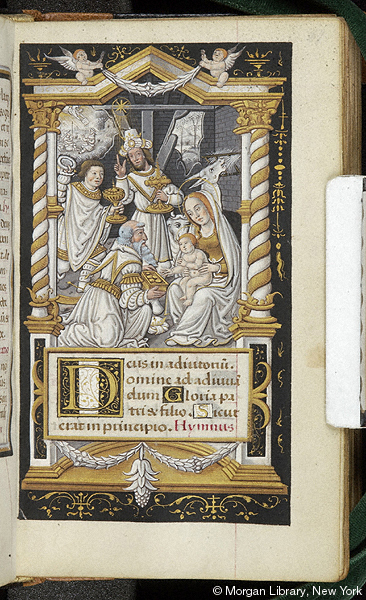 Deus in adiutoriū.
Domine ad adiuuā
dum Gloria pa
tri & filio. Sicut
erat in principio. Hymnus
© Morgan Library, New York